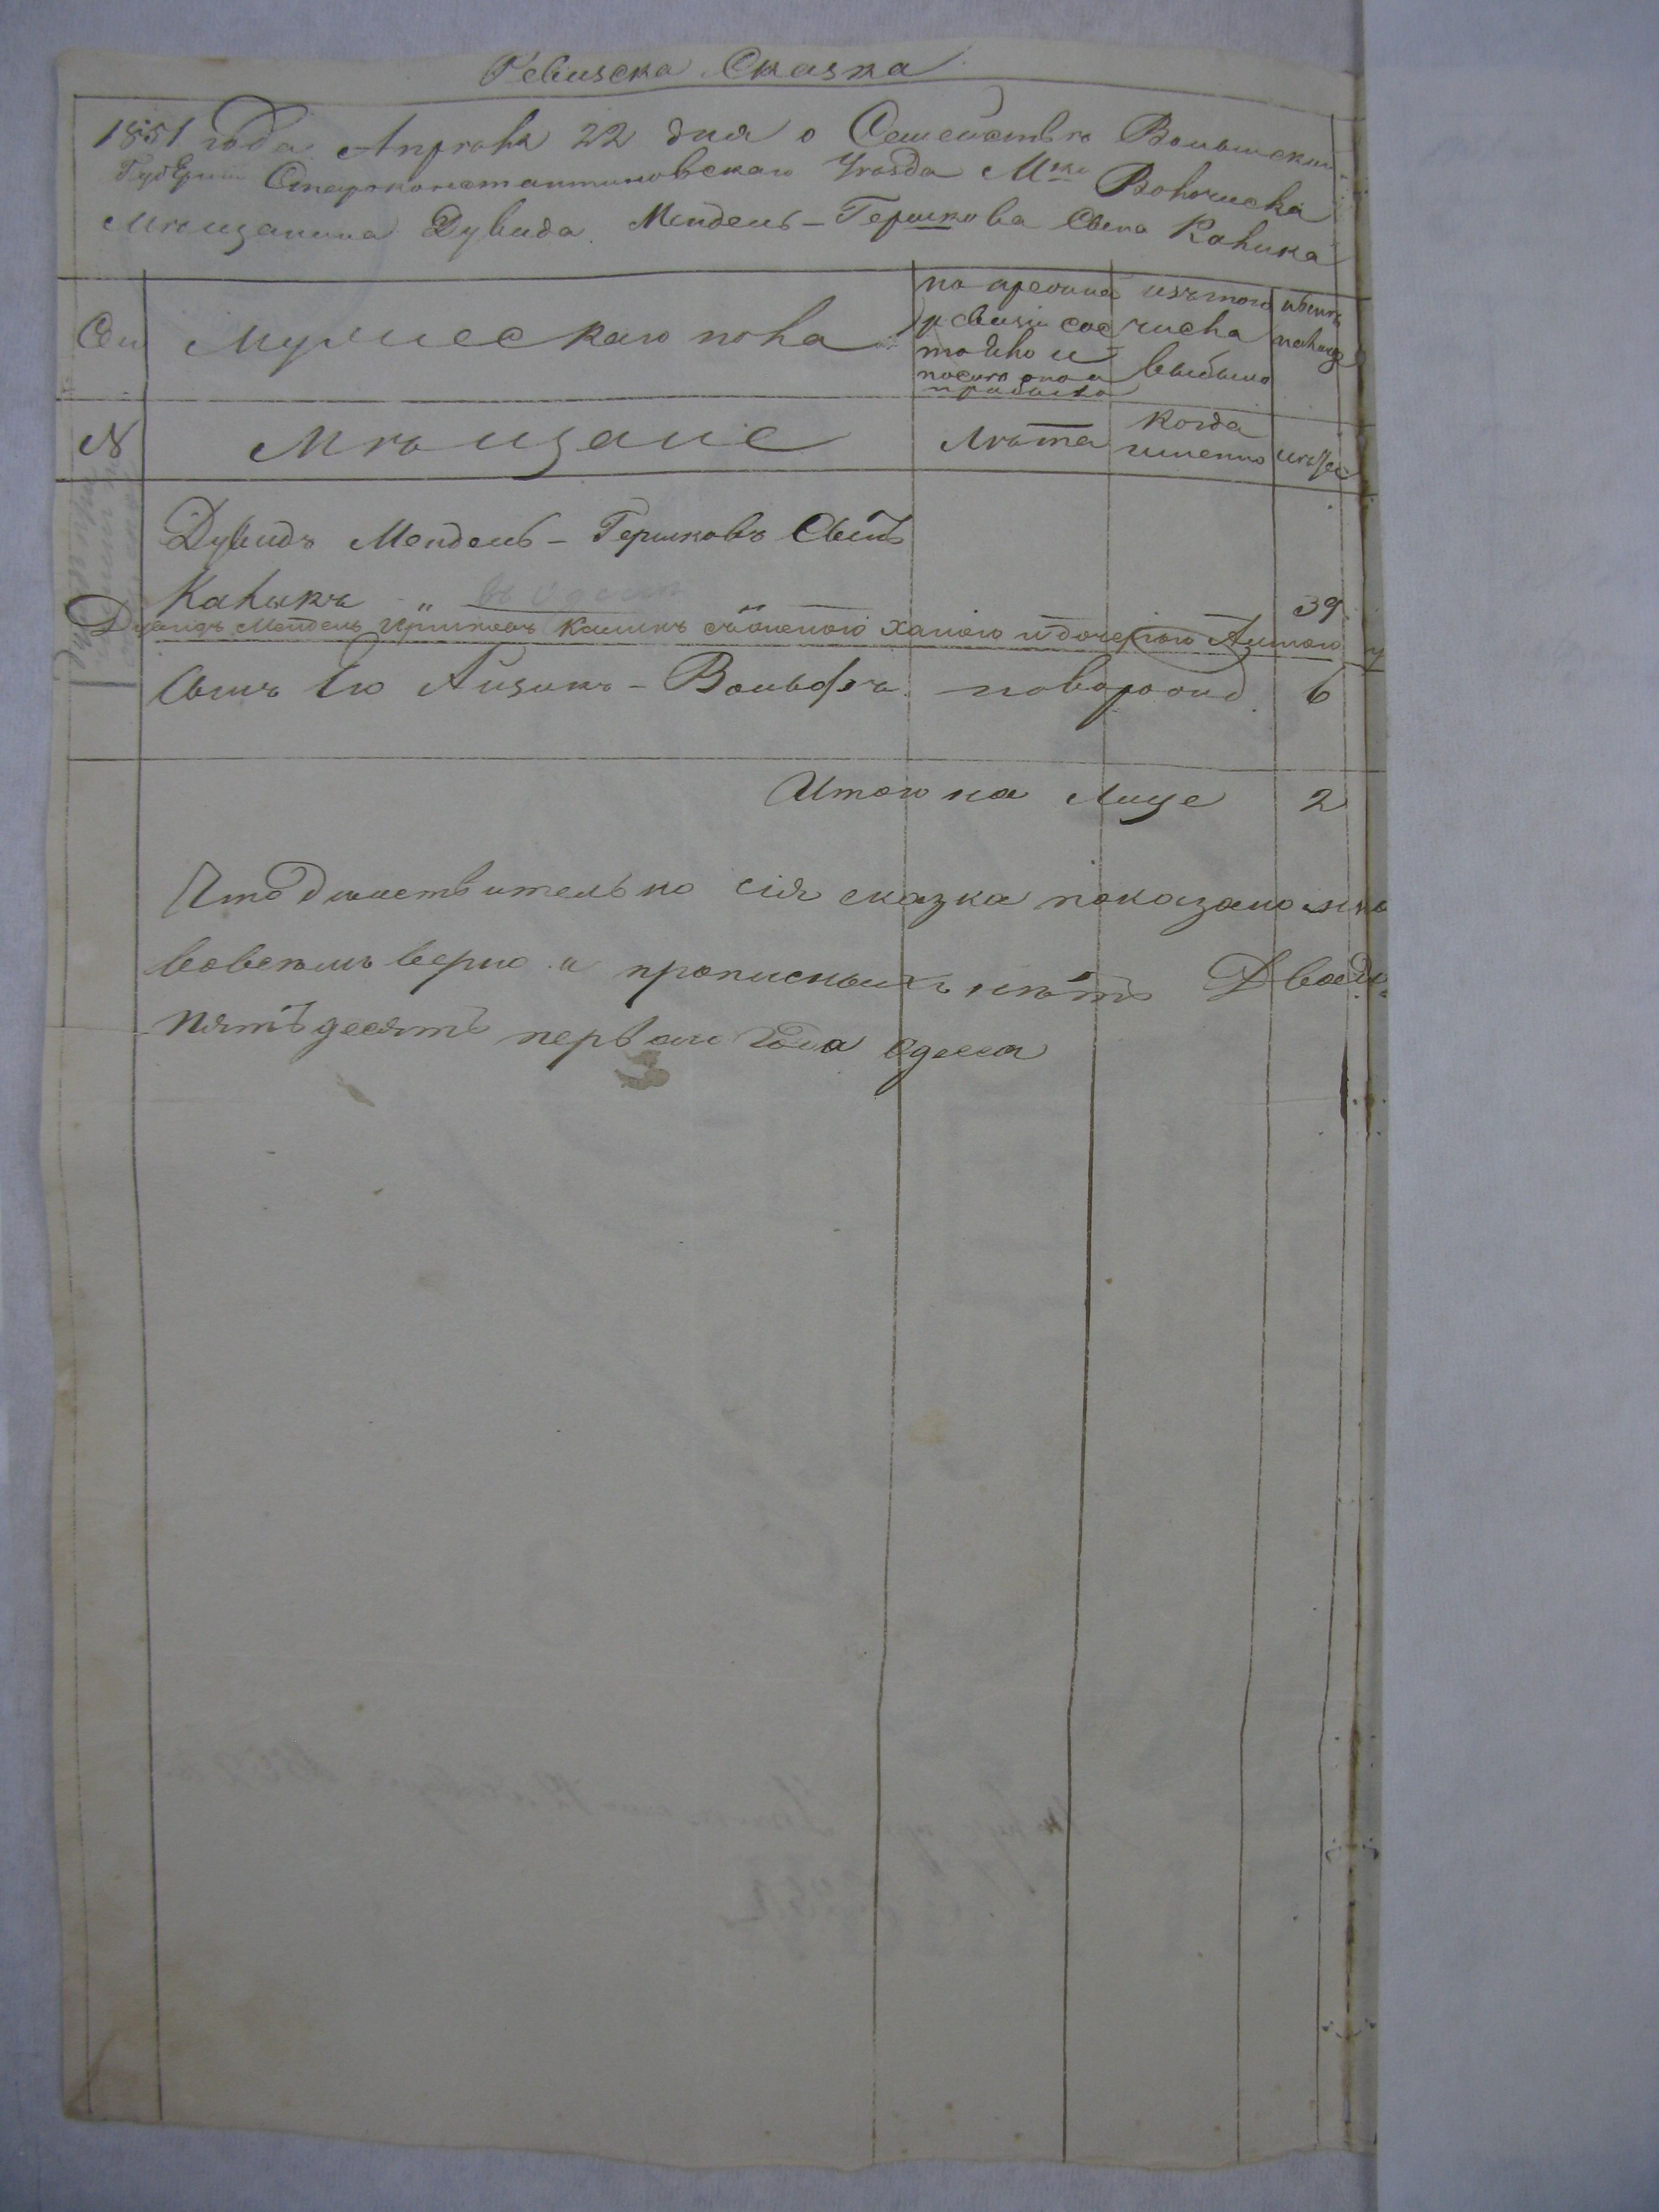 Ревизска Сказка
1851 года Апреля 22 дня о Семействѣ Волынской
Губернии Староконстантиновскаго Уѣзда Мка Волочиска
Мѣщанина Дувида Мендель-Гершкова Сына Калика
Мужескаго пола
по
ревизіи сос
тояло и
послѣ оной
прибыло
изъ того
числа
выбыло
нынѣ
на лицо
№ Мѣщане Лѣта когда
именно
Дувидъ Мендель-Гершковъ Сынъ
Каликъ " въ Одессе 39
Дувидъ Мендель Гершковъ Каликъ съ женою Ханою и дочерью
Сынъ Его Айзикъ-Вольфъ новорожд 6
Итого на Лице 2
Что действительно сія сказка показано мною
вовсемъ верно и прописныхъ нѣтъ
пятъдесятъ первого Года Одесса